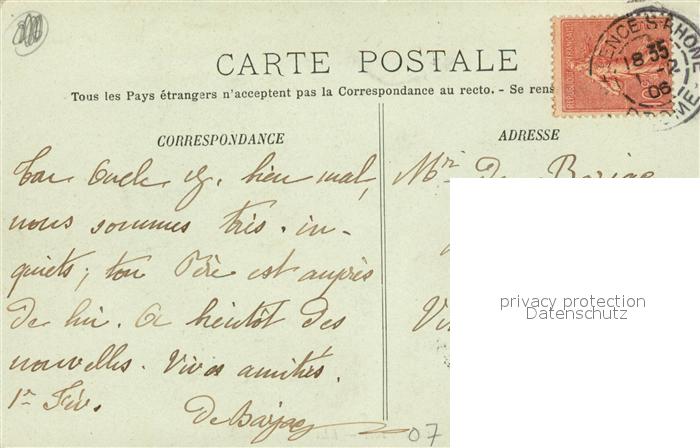 CARTE POSTALE
Tous les Pays étrangers n'acceptent pas la Correspondance au recto. - Se rens
CORRESPONDANCE
ADRESSE
Ton Oncle bien mal,
nous sommes très in-
quiets; ton Père est auprès
de lui. A bientôt des
nouvelles. Vives amitiés.
1er Fév.
de Barjac
Mr de Barjac
privacy protection
Datenschutz
07
ENCE S RHONE
18 35
1 -2
06
DROME